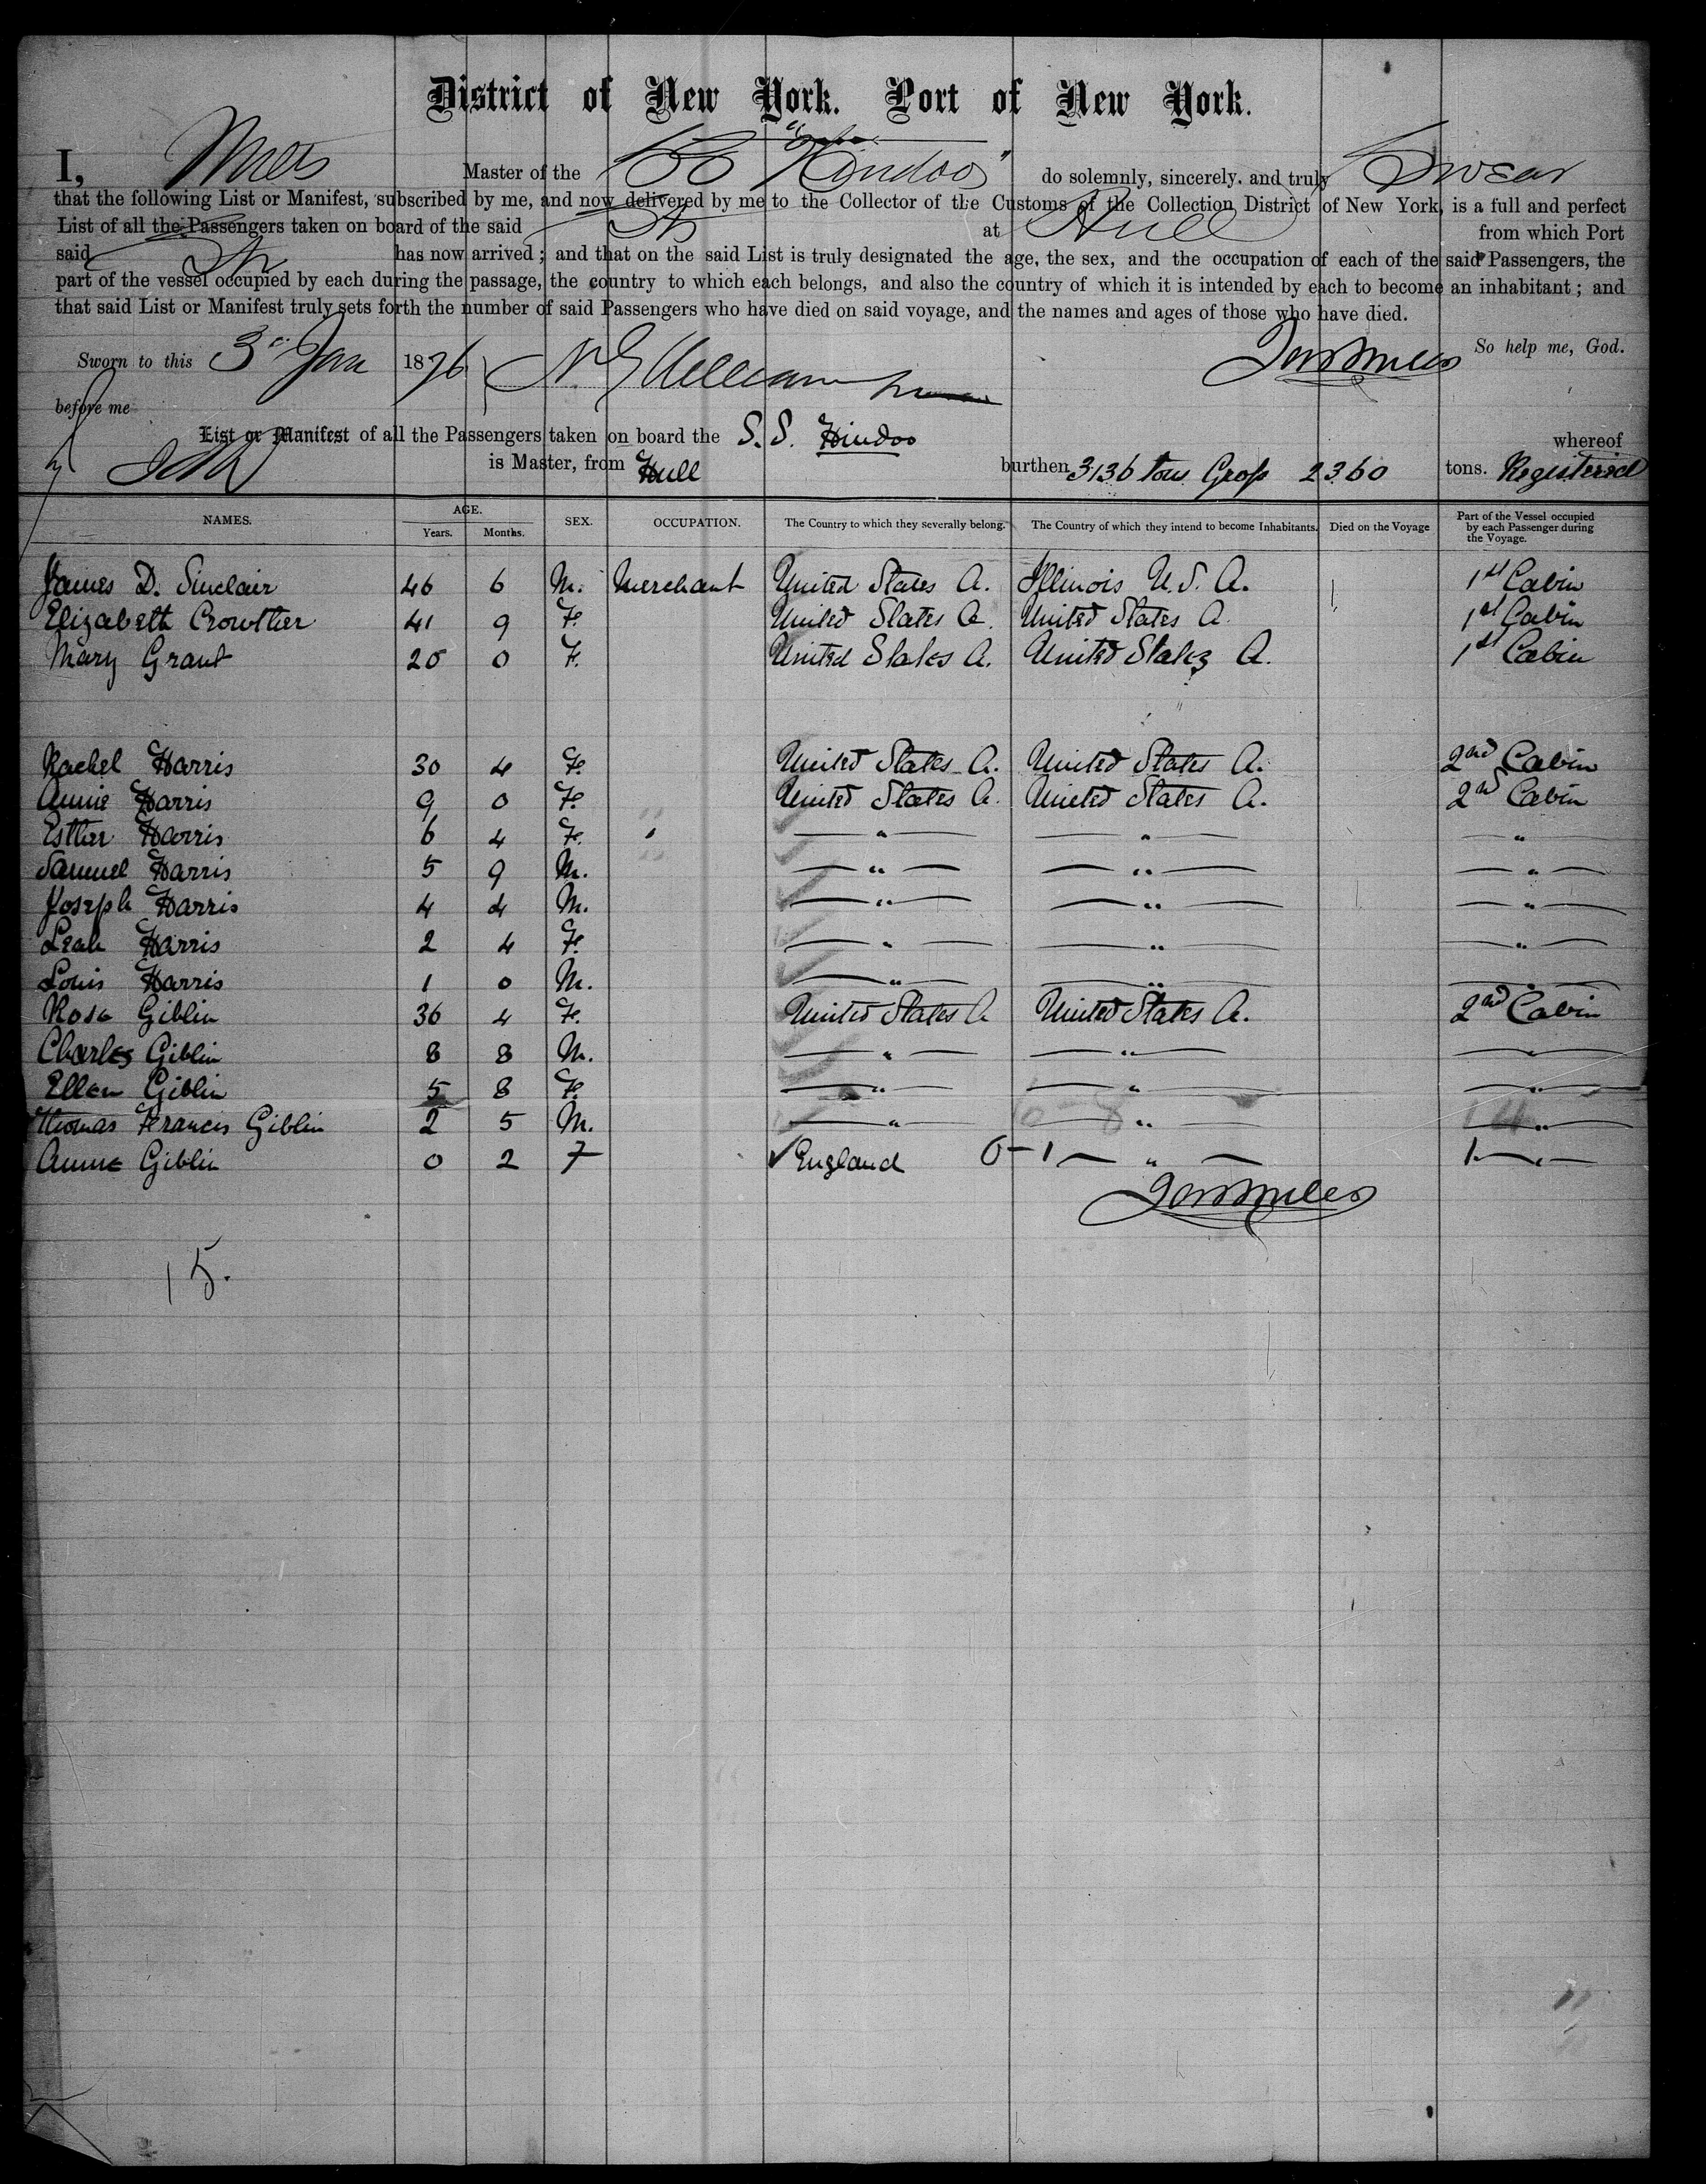 District of New York. Port of New York.
I, Miles Master of the SS "Hindoo" do solemnly, sincerely. and truly Swear
that the following List or Manifest, subscribed by me, and now delivered by me to the Collector of the Customs of the Collection District of New York, is a full and perfect
List of all the Passengers taken on board of the said Sh at Hull from which Port
said Sh has now arrived; and that on the said List is truly designated the age, the sex, and the occupation of each of the said Passengers, the
part of the vessel occupied by each during the passage, the country to which each belongs, and also the country of which it is intended by each to become an inhabitant; and
that said List or Manifest truly sets forth the number of said Passengers who have died on said voyage, and the names and ages of those who have died.
So help me, God.
Sworn to this 3d Jan 1876
before me
List or Manifest of all the Passengers taken on board the S.S. Hindoo whereof
is Master, from Hull burthen 3136 tons Gross 2360 tons. Registered
NAMES. AGE. Years. Months. SEX. OCCUPATION. The Country to which they severally belong. The Country of which they intend to become Inhabitants. Died on the Voyage Part of the Vessel occupied by each Passenger during the Voyage.
James D. Sinclair 46 6 M. Merchant United States A. Illinois U.S.A. 1st Cabin
Elizabeth Crowther 41 9 F. United States A. United States A. 1st Cabin
Mary Grant 20 0 F. United States A. United States A. 1st Cabin
Rachel Harris 30 4 F. United States A. United States A. 2nd Cabin
Annie Harris 9 0 F. United States A. United States A. 2nd Cabin
Esther Harris 6 4 F. — " — — " — — " —
Samuel Harris 5 9 M. — " — — " — — " —
Joseph Harris 4 4 M. — " — — " — — " —
Leah Harris 2 4 F. — " — — " — — " —
Louis Harris 1 0 M. — " — — " — — " —
Rosa Giblin 36 4 F. United States A United States A. 2nd Cabin
Charles Giblin 8 8 M. — " — — " — — " —
Ellen Giblin 5 8 F. — " — — " — — " —
Thomas Francis Giblin 2 5 M. — " — — " — — " —
Annie Giblin 0 2 F ✓ England 0-1 — " — 1 — " —
15.